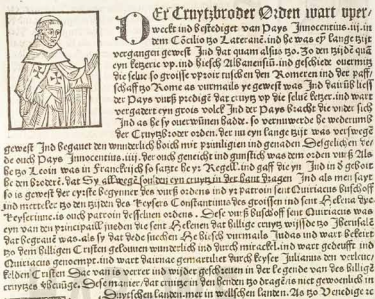 DEr Cruytzbroder Orden wart vper⸗
weckt ind bestediget van Pays Innocentius.iij.in
dem Cōcilio zo Laterane.ind he was eȳ lange zijt
vergangen gewest Ind dat quam alsus zo. Zo den tzijdē quā
eyn ketzerie vp.ind hiesch Albanensiū.ind geschiede ouermitz
die selue so groisse vproir tuschen den Romeren ind der paff⸗
schaff zo Rome as vurmails ye gewest was Ind darūb liess
der Pays vurß predigē dat cruytz vp die selue ketzer.ind wart
vergadert eyn groys volck Ind der Pays bracht die vnder sich
Ind as he sy ouerwūnen hadde.so vernuwede he wederumb
der Cruytzbroder orden.der nu eyn lange zijt was verswegē
gewest Ind begauet den wunderlich hoich mit priuilegien ind genaden Desgelichen ve⸗
de ouch Pays Innocentius.iiij.der ouch geneicht ind gunstlich was dem orden vurß Als⸗
be tzo Leoin was in Franckrijch so satzte he yr Regell.ind gaff die yn Ind in ē geboit
he den brodere.dat Sy allwege soulden eyn cruytz in der hant dragen Ind als men sayt
so is gewest der eyrste begynner des vurß ordens ind yr patroin sent Quiriacus buschoff
ind mertelēr tzo den tzijden des Keysers Constantinus des groissen ind sent Helena dye
Keyserinne.is ouch patroin desseluen ordens. Dese vurß buschoff sent Quiriacus was
eyn van den principaill iueden die sent Helenen dat hillige cruytz wijsde zo Iherusalē
dat begrauē was.als sy dat dede soichen He hiesch vurmails Iudas ind wart bekeirt
tzo dem hilligen Cristen gelouuen wunderlich ind durch mirackel.ind wart gedeufft ind
Quiriacus genoempt.ind wart dairnae gemartiliet durch keyser Julianum den verleuc⸗
kelden Cristen Dae van is verrer ind wijder geschreuen in der legende van des hilligē
cruytzes vbenūge. Dese manier.dat cruytze in den henden zo dragē is niet gewoenlich in
Duytschen landen.mer in welschen landen. Als zo Venedige ꝛc